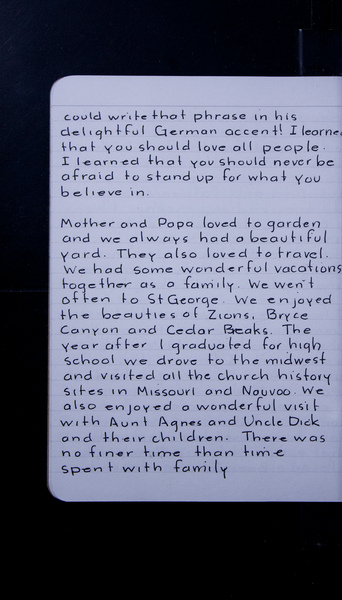 could write that phrase in his
delightful German accent! I learned
that you should love all people.
I learned that you should never be
afraid to stand up for what you
believe in.
Mother and Papa loved to garden
and we always had a beautiful
yard. They also loved to travel.
We had some wonderful vacations
together as a family. We went
often to St George. We enjoyed
the beauties of Zions, Bryce
Canyon and Cedar Breaks. The
year after I graduated for high
school we drove to the midwest
and visited all the church history
sites in Missouri and Nauvoo. We
also enjoyed a wonderful visit
with Aunt Agnes and Uncle Dick
and their children. There was
no finer time than time
spent with family